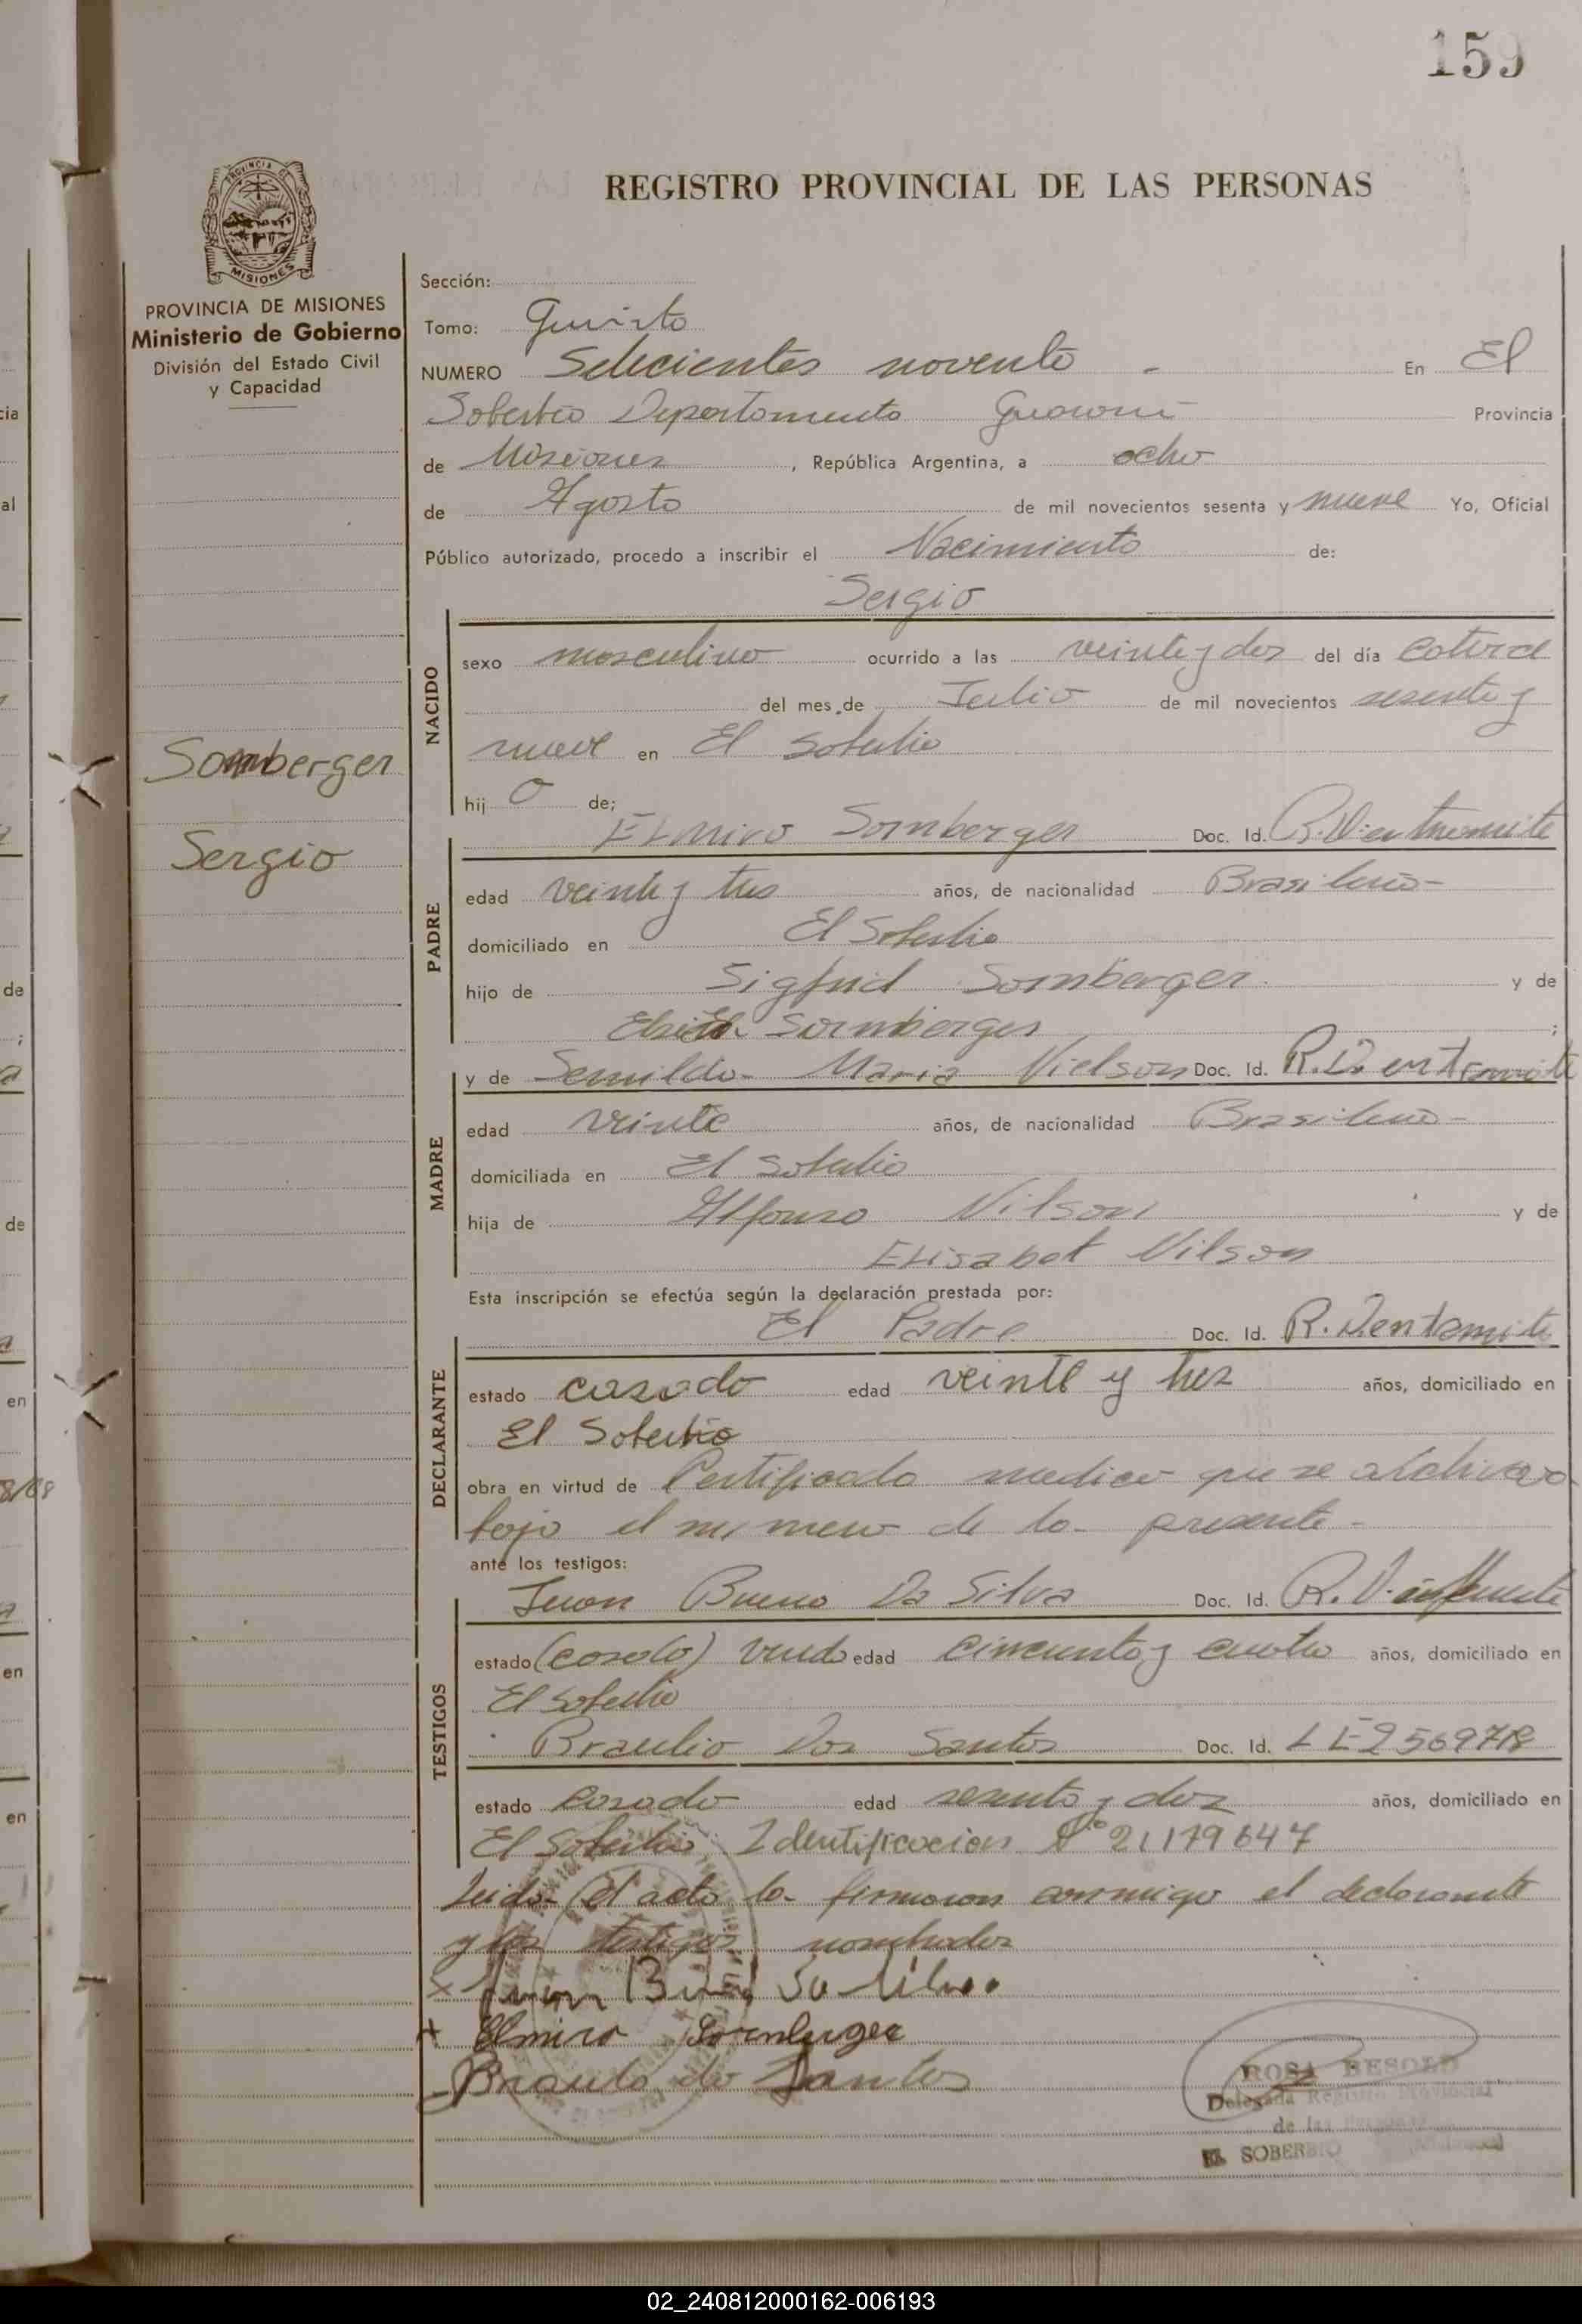 159
REGISTRO PROVINCIAL DE LAS PERSONAS
PROVINCIA DE MISIONES
Ministerio de Gobierno
División del Estado Civil
y Capacidad
Sornberger
Sergio
Sección:
Tomo: Quinto
NUMERO Setecientos noventa - En El
Soberbio Departamento Guarani Provincia
de Misiones, República Argentina, a ocho
de Agosto de mil novecientos sesenta y nueve Yo, Oficial
Público autorizado, procedo a inscribir el Nacimiento de:
Sergio
NACIDO
sexo masculino ocurrido a las veinte y dos del día catorce
del mes de Julio de mil novecientos sesenta y
nueve en El Soberbio
hij o de;
Elmiro Sornberger Doc. Id.
PADRE
edad veinte y tres años, de nacionalidad Brasileña-
domiciliado en El Soberbio
hijo de Sigfrid Sornberger y de
Sornberger ;
y de Maria Nielson Doc. Id. R.D. en tramite
MADRE
edad veinte años, de nacionalidad Brasileña-
domiciliada en El Soberbio
hija de Alfonso Nilson y de
Elisabet Nilson
Esta inscripción se efectúa según la declaración prestada por:
El Padre Doc. Id.
DECLARANTE
estado casado edad veinte y tres años, domiciliado en
El Soberbio
obra en virtud de Certificado medico que se archiva
bajo el numero de la presente-
ante los testigos:
Juan Bueno Da Silva Doc. Id.
TESTIGOS
estado (casado) viudo edad cincuenta y cuatro años, domiciliado en
El Soberbio
Braulio Dos Santos Doc. Id. LE 2569718
estado Casado edad sesenta y dos años, domiciliado en
El Soberbio, Identificacion Nº 21179647
Leida el acta la firmaron conmigo el declarante
y los testigos nombrados
x Juan
+ Elmiro Sornberger
Braulio do Santos
ROSA BESOLD
Delegada Registro Provincial
de las Personas
EL SOBERBIO
02_240812000162-006193